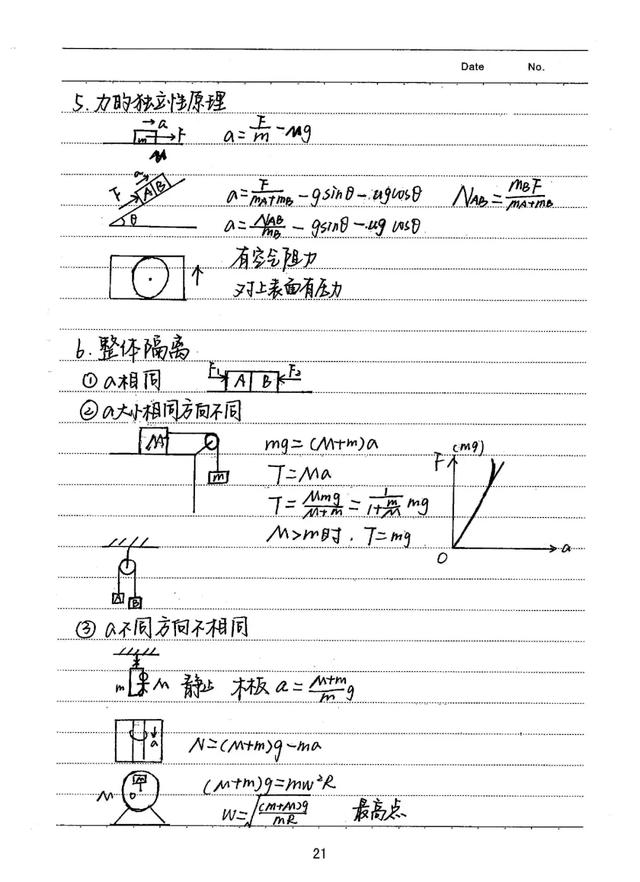 Date No.
5. 力的独立性原理
a F m
a = F/m - μg
μ
a F A B θ
a = F/(mA+mB) - gsinθ - μgcosθ NAB = mBF/(mA+mB)
a = NAB/mB - gsinθ - μg cosθ
有空气阻力
对上表面有压力
6. 整体隔离
① a相同 F1 A B F2
② a大小相同方向不同
M m
mg = (M+m)a
T = Ma
T = Mmg/(M+m) = 1/(1+m/M) mg
M>m时, T=mg
F (mg) a O
A B
③ a不同方向不相同
m M 静止 木板 a = (M+m)/m g
a N=(M+m)g-ma
M m (M+m)g=mw²R
W=√((m+M)g/mR) 最高点
21